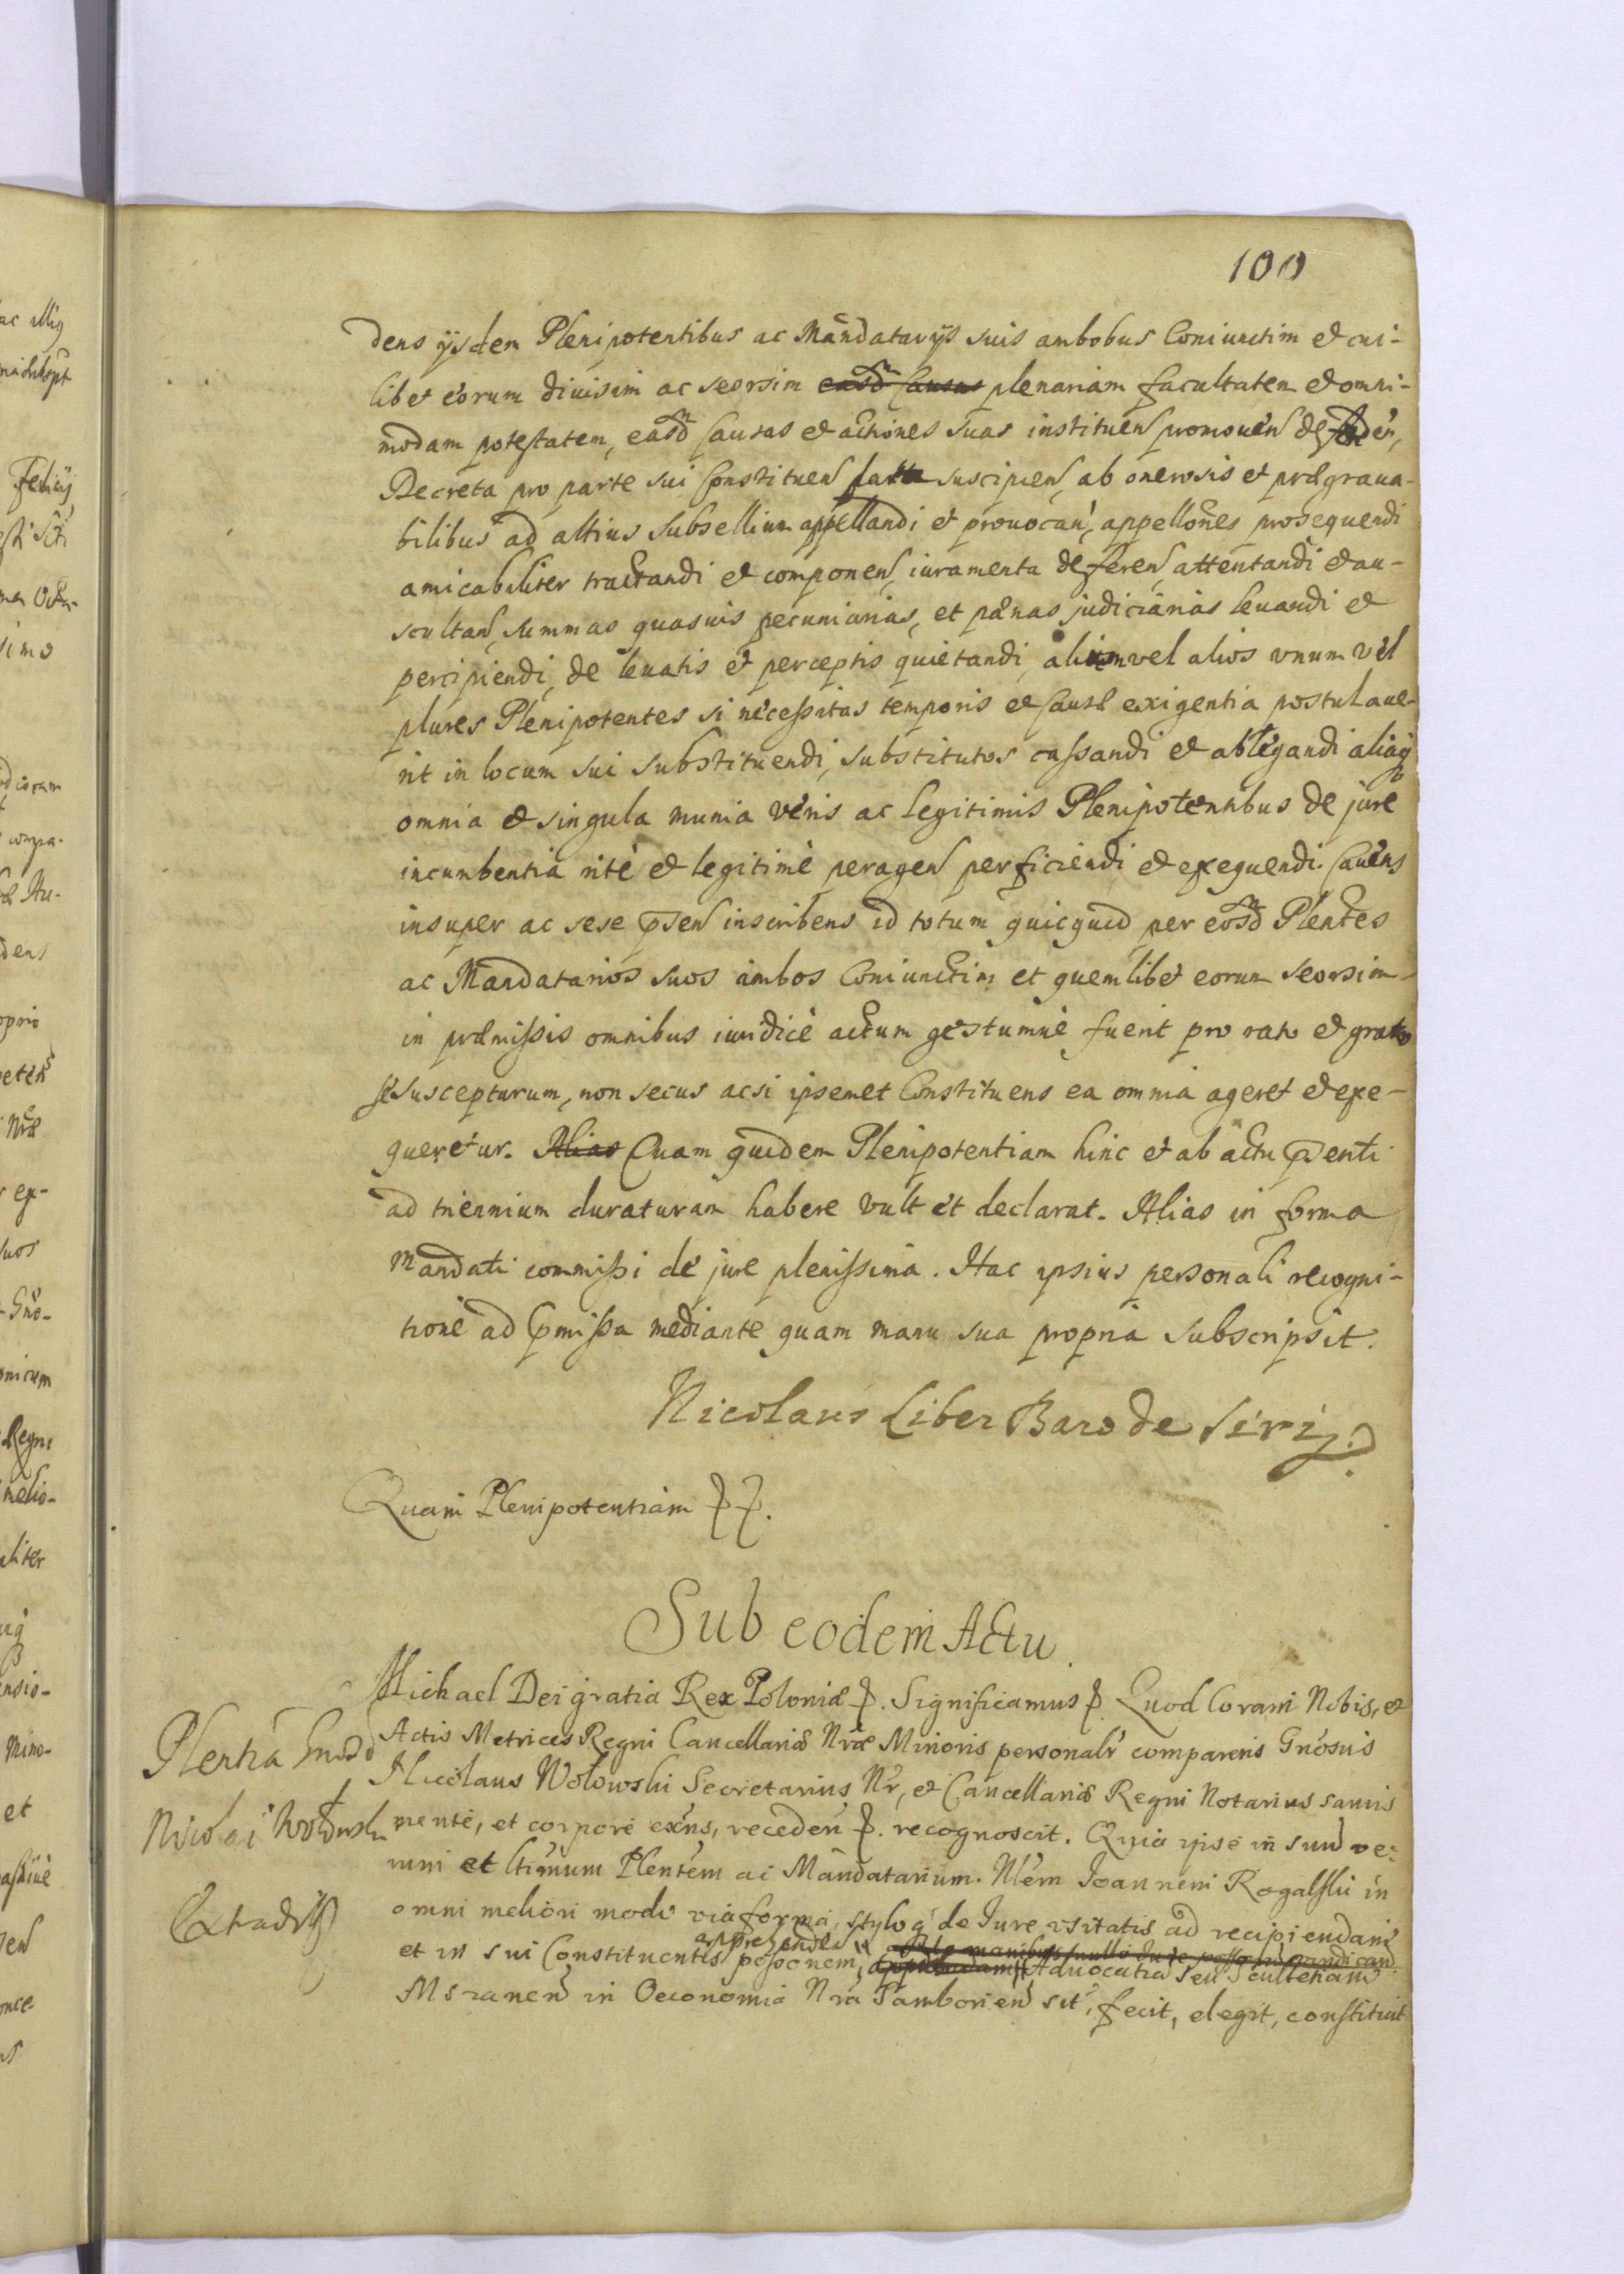 100
dens ijsdem Plenipotentibus ac Mandatarijs suis ambobus Coniunctim et cui-
libet eorum diuisim ac seorsim easdm Causas plenariam facultatem et omni-
modam potestatem, easdm Causas et actiones suas instituen promouen defenden,
Decreta pro parte sui Constituen lata suscipien, ab onerosis et prægraua-
bilibus ad altius Subsellium appellandi et prouocan, appellones prosequendi
amicabiliter tractandi et componen, iuramenta deferen, attentandi et au-
scultan, summas quasuis pecuniarias, et pænas judiciarias leuandi et
percipiendi, de leuatis et perceptis quietandi, alium vel alios vnum vel
plures Plenipotentes si necessitas temporis et Causæ exigentia postulaue-
rit in locum sui substituendi, substitutos cassandi et ablegandi aliaq
omnia et singula munia veris ac legitimis Plenipotentibus de jure
incumbentia ritè et legitimè peragen perficiendi et exequendi. Cauens
insuper ac sese pnsen inscribens id totum quicquid per eosdm Plentes
ac Mandatarios suos ambos Coniunctim et quemlibet eorum seorsim
in præmissis omnibus iuridicè actum gestumuè fuerit pro rato et grato
se suscepturum, non secus acsi ipsemet Constituens ea omnia ageret et exe-
queretur. Alias Quam quidem Plenipotentiam hinc et ab actu pnti
ad triennium duraturam habere vult et declarat. Alias in forma
Mandati commissi de jure plenissima. Hac ipsius personali recogni-
tione ad pmissa mediante quam manu sua propria subscripsit.
Nicolaus Liber Baro de
Quam Plenipotentiam
Sub eodem Actu
Michael Dei gratia Rex Poloniæ. Significamus. Quod Coram Nobis, et
Actis Metrices Regni Cancellariæ Nræ Minoris personalr comparens Gnosus
Nicolaus Wołowski Secretarius Nr, et Cancellariæ Regni Notarius sanus
mente, et corpore exns, receden. recognoscit. Quia ipse in suum ve-
rum et ltimum Plentem ac Mandatarium. Nlem Joannem Rogalski in
omni meliori modo via forma, styloq de Jure vsitatis ad recipiendam
et in sui Constituentis possonem, Aduocatiã seu Scultetiam
in Oeconomia Nra Samborien sit, fecit, elegit, constituit
Plentia Gnosi
Nicolai Wołowski
Extradit